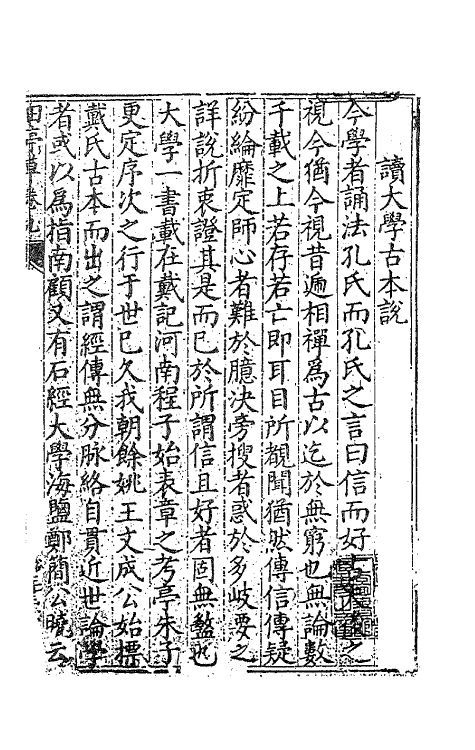 讀大學古本說
今學者誦法孔氏而孔氏之言曰信而好古後之
視今猶今視昔遞相禪爲古以迄於無窮也無論數
千載之上若存若亡即耳目所覩聞猶然傳信傳疑
紛綸靡定師心者難於臆決旁搜者惑於多岐要之
詳說折衷證其是而已於所謂信且好者固無盭也
大學一書載在戴記河南程子始表章之考亭朱子
更定序次之行于世已久我朝餘姚王文成公始標
戴氏古本而出之謂經傳無分脉絡自貫近世論學
者或以爲指南顧又有石經大學海鹽鄭簡公曉云
田亭草卷九